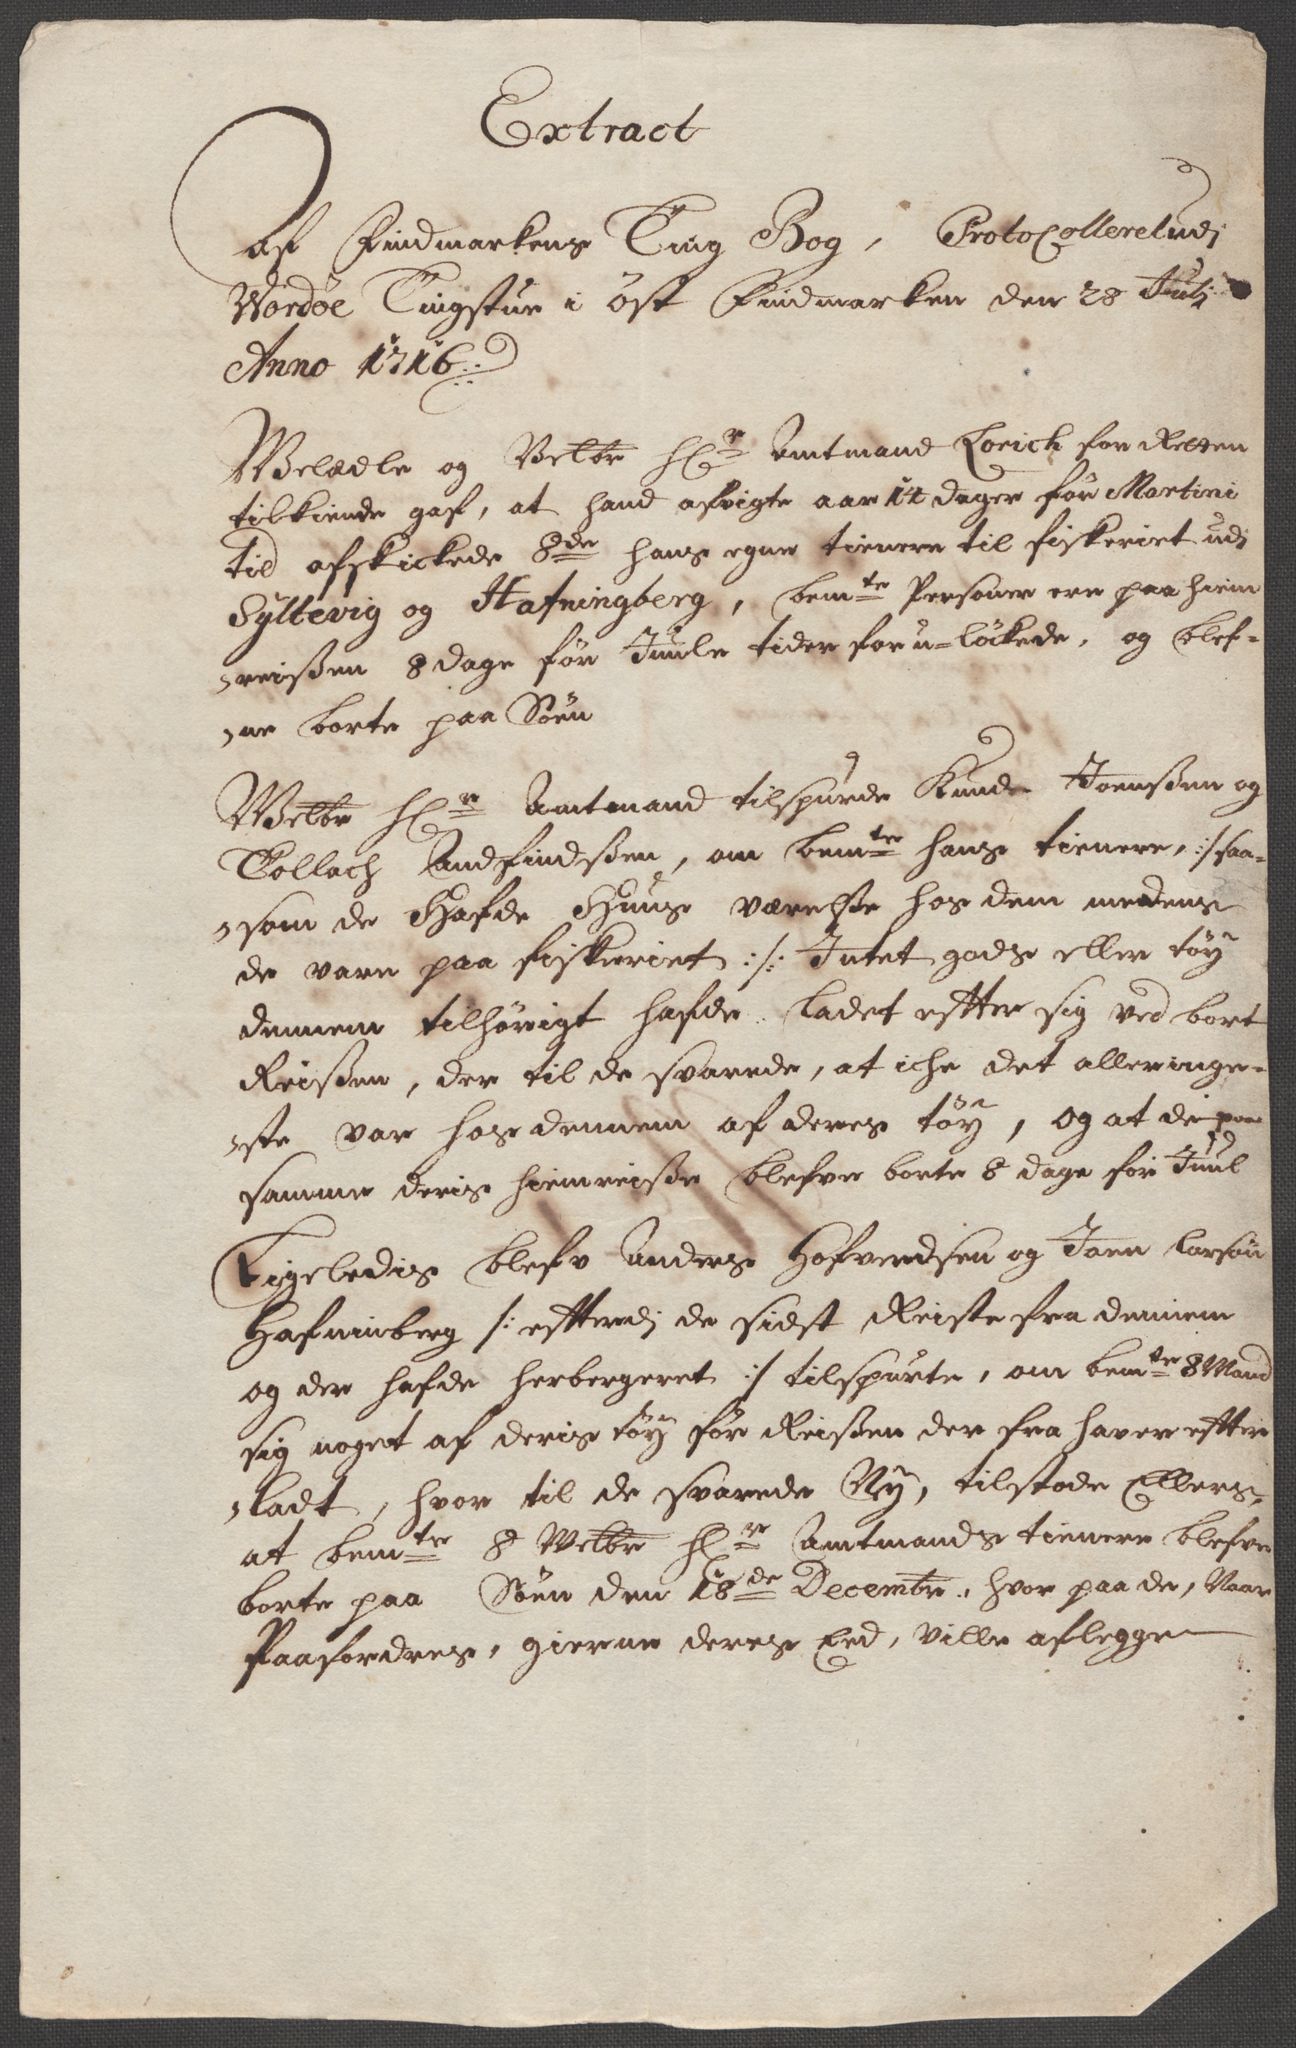 Extract
Af Findmarkens Ting Bog, Protocolleret udj
Wardøe Tingstue i Øst Findmarken den 28 Julj
Anno 1716
Welædle og Velbr Hr Amtmand Lorich for Retten
tilkiende gaf, at hand afvigte aar 14 dager før Martini
tid afskickede 8de hans egne tienere til fiskeriet udj
Syltevig og Hafningberg, bemte Personer ere paa hiem
reissen 8 dage før Juule tider foru-löckede, og blef-
ne borte paa Søen
Welbr Hr Amtmand tilspurde Knud Joenssen og
Tollach Andfindssen, om bemte hans tienere, :/ saa-
som de Hafde Huus værelse hos dem medens
de vare paa fiskeriet :/: Intet gods eller töy
dennem tilhörigt hafde ladet efter sig ved bort
Reissen, der til de svarede, at iche det alleringe-
ste var hos dennem af deres töy, og at de paa
samme deris hiemreise blefve borte 8 dage for Juul
Ligeledis blefv Anders Hofverdsen og Joen Larsøn
Hafninberg /: efterdj de sidst Reiste fra dennem
og der hafde herbergeret :/ tilspurte, om bemte 8 Mand
sig noget af deris töy för Reissen der fra haver efter
ladt, hvor til de svarede Ny, tilstode Ellers,
at bemte 8 Welbr Hr Amtmands tienere blefve
borte paa Søen den 18de Decembr, hvor paa de, Naar
Paafordres, gierne deres Eed, ville aflegge